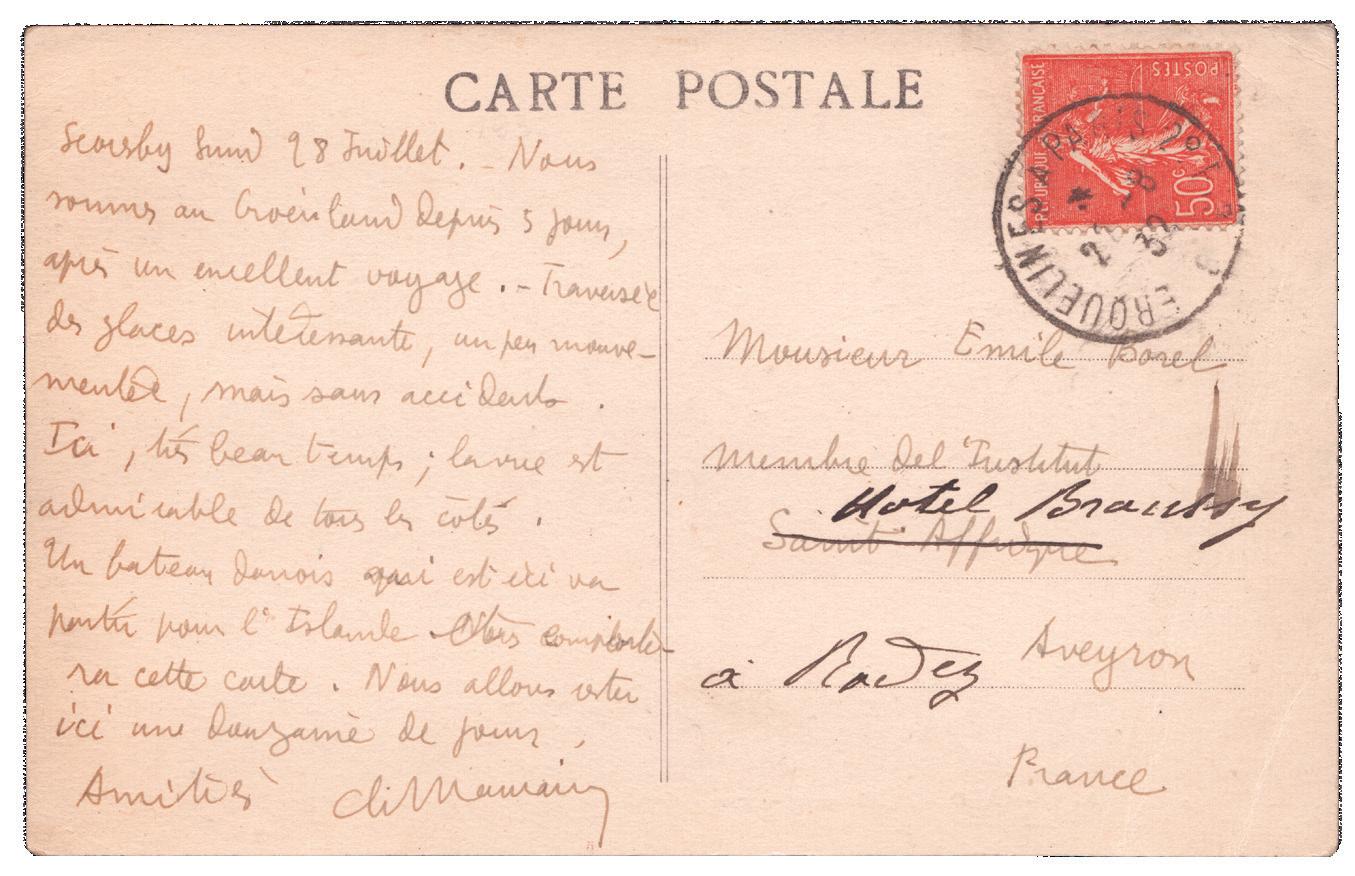 CARTE POSTALE
RÉPUBLIQUE FRANÇAISE
POSTES
50c
ERQUELINES A PARIS 2º
22 -8
32
Scoresby Sund 28 Juillet. - Nous
sommes au Groënland depuis 5 jours,
après un excellent voyage. - Traversée
des glaces intéressante, un peu mouve-
mentée, mais sans accidents.
Ici, très beau temps; la vue est
admirable de tous les côtés.
Un bateau danois qui est ici va
partir pour l'Islande
ra cette carte. Nous allons rester
ici une douzaine de jours.
Amitiés Ch Maurain
Monsieur Emile Borel
Membre de l'Institut
Hotel Broussy
Saint Affrique
à Rodez Aveyron
France